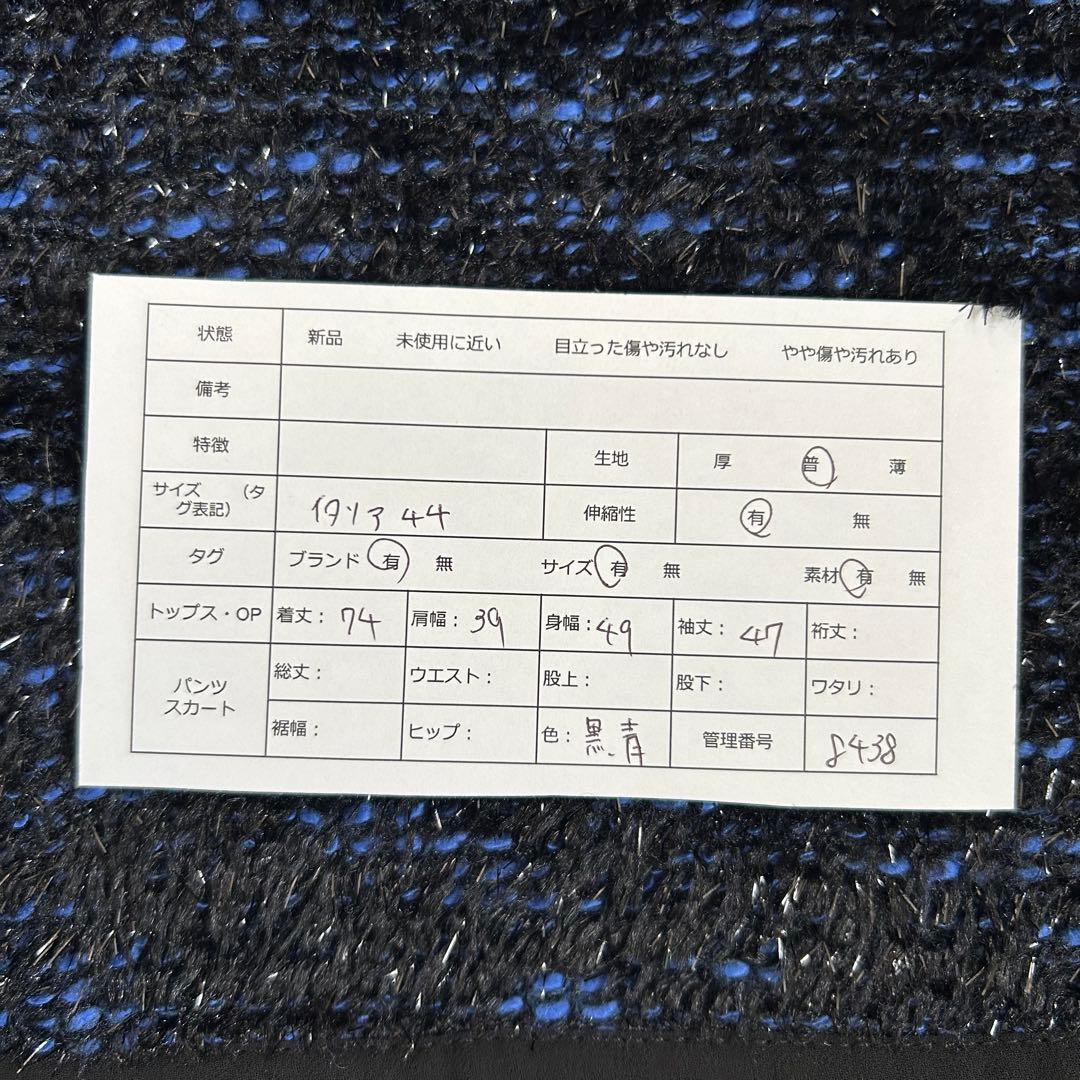 状態 新品 未使用に近い 目立った傷や汚れなし やや傷や汚れあり
備考
特徴 生地 厚 普 薄
サイズ (タグ表記) イタリア 44 伸縮性 有 無
タグ ブランド 有 無 サイズ 有 無 素材 有 無
トップス・OP 着丈: 74 肩幅: 39 身幅: 49 袖丈: 47 裄丈:
パンツ スカート 総丈: ウエスト: 股上: 股下: ワタリ:
裾幅: ヒップ: 色: 黒、青 管理番号 8438